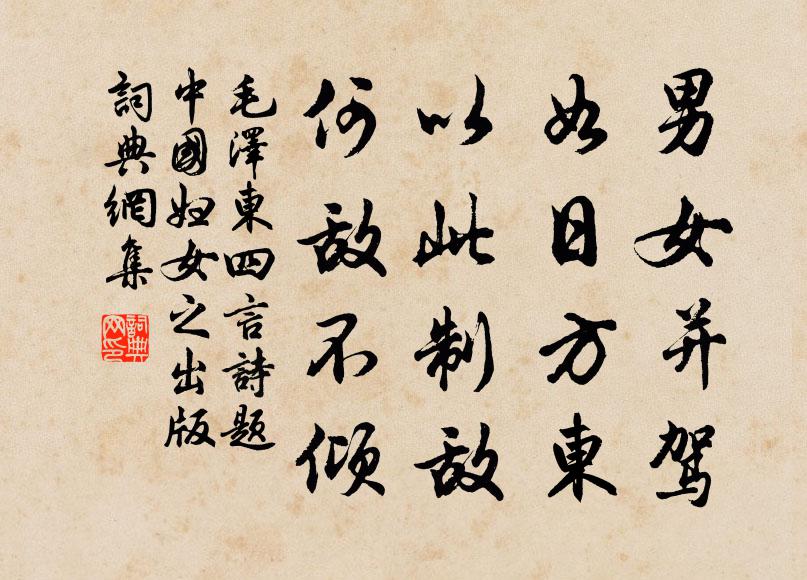 男女并驾
如日方東
以此制敌
何敌不倾
毛澤東四言詩題
中國妇女之出版
詞典網集
詞典
网印